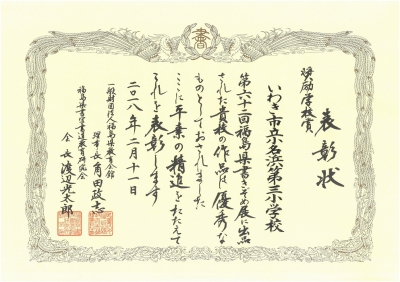 書
表彰状
奨励学校賞
いわき市立小名浜第三小学校
第六十二回福島県書きぞめ展に出品
された貴校の作品は優秀な
ものとしておされました
ここに平素の精進をたたえて
これを表彰します
二〇一八年二月十一日
一般財団法人福島県教育会館
理事長 角田政志
福島県書写書道教育研究会
会長 渡辺光太郎